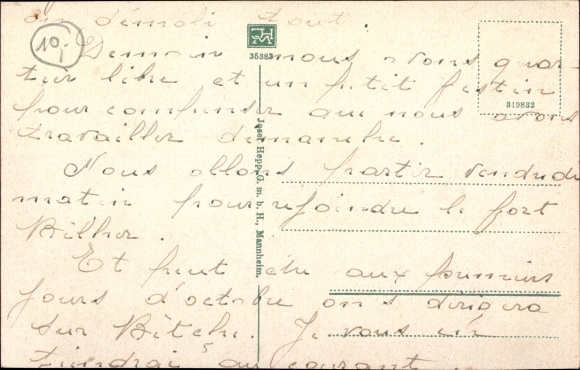 on démoli tout.
10,-
35383
Demain nous avons quar-
tier libre et un petit festin
319832
pour compenser que nous avons
travailler dimanche.
Josef Hepp, G. m. b. H., Mannheim.
Nous allons partir vendredi
matin pour rejoindre le fort
Et peut être aux premiers
jours d'octobre on s dirigera
sur Bitche. Je vous en
tiendrai au courant.